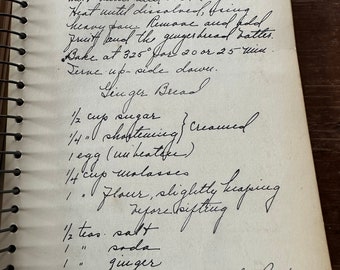 Heat until dissolved, using
heavy pan. Remove and add
fruit and the gingerbread batter.
Bake at 325° for 20 or 25 min.
Serve up-side down.
Ginger Bread
1/2 cup sugar
1/4 " shortening } Creamed
1 egg (unbeaten)
1/4 cup molasses
1 " flour, slightly heaping
before sifting
1/2 teas. salt
1 " soda
1 " ginger